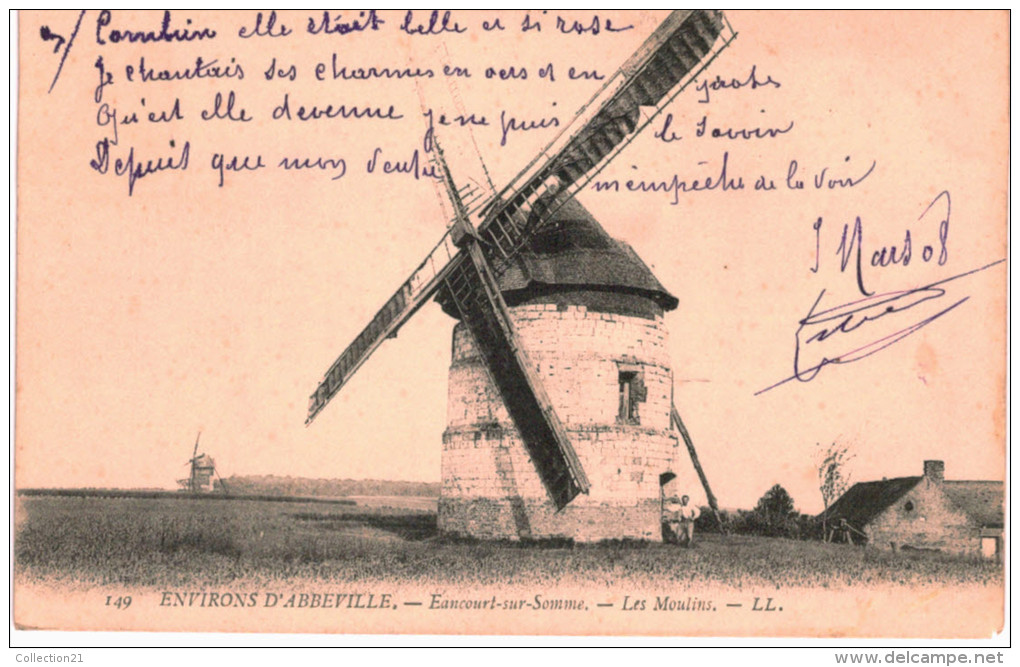 Combien elle était belle et si rose
Je chantais ses charmes en vers et en prose
Qu'est elle devenue je ne puis le savoir
Depuis que mon ventre m'empêche de la voir
1 Mars 08
149 ENVIRONS D'ABBEVILLE. — Eancourt-sur-Somme. — Les Moulins. — LL.
Collection21
http://www.delcampe.net